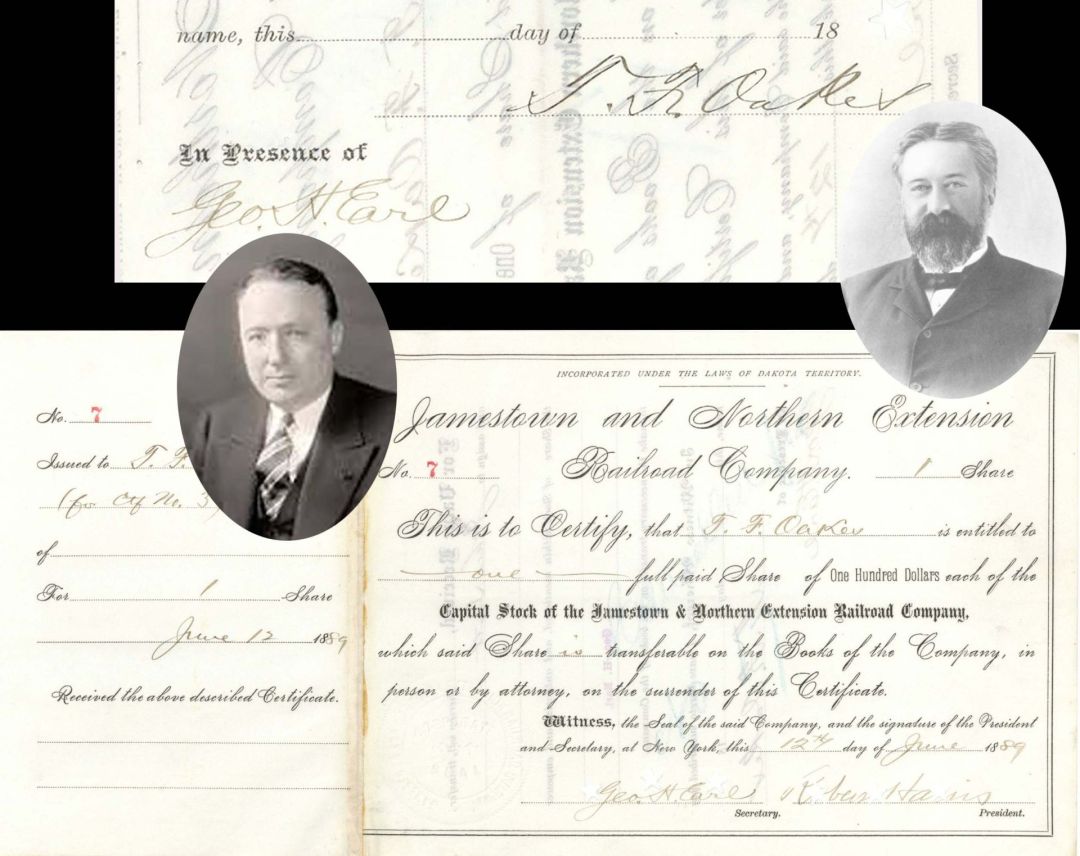 name, this day of 18
T. F. Oakes
In Presence of
Geo. H. Earl
No. 7
Issued to T. F.
(for Ctf No. 3)
of
For 1 Share
June 12 1889
Received the above described Certificate.
INCORPORATED UNDER THE LAWS OF DAKOTA TERRITORY.
Jamestown and Northern Extension
No. 7 Railroad Company. 1 Share
This is to Certify, that T. F. Oakes is entitled to
one full paid Share of One Hundred Dollars each of the
Capital Stock of the Jamestown & Northern Extension Railroad Company,
which said Share is transferable on the Books of the Company, in
person or by attorney, on the surrender of this Certificate.
Witness, the Seal of the said Company, and the signature of the President
and Secretary, at New York, this 12th day of June 1889
Geo. H. Earl Robert Harris
Secretary. President.